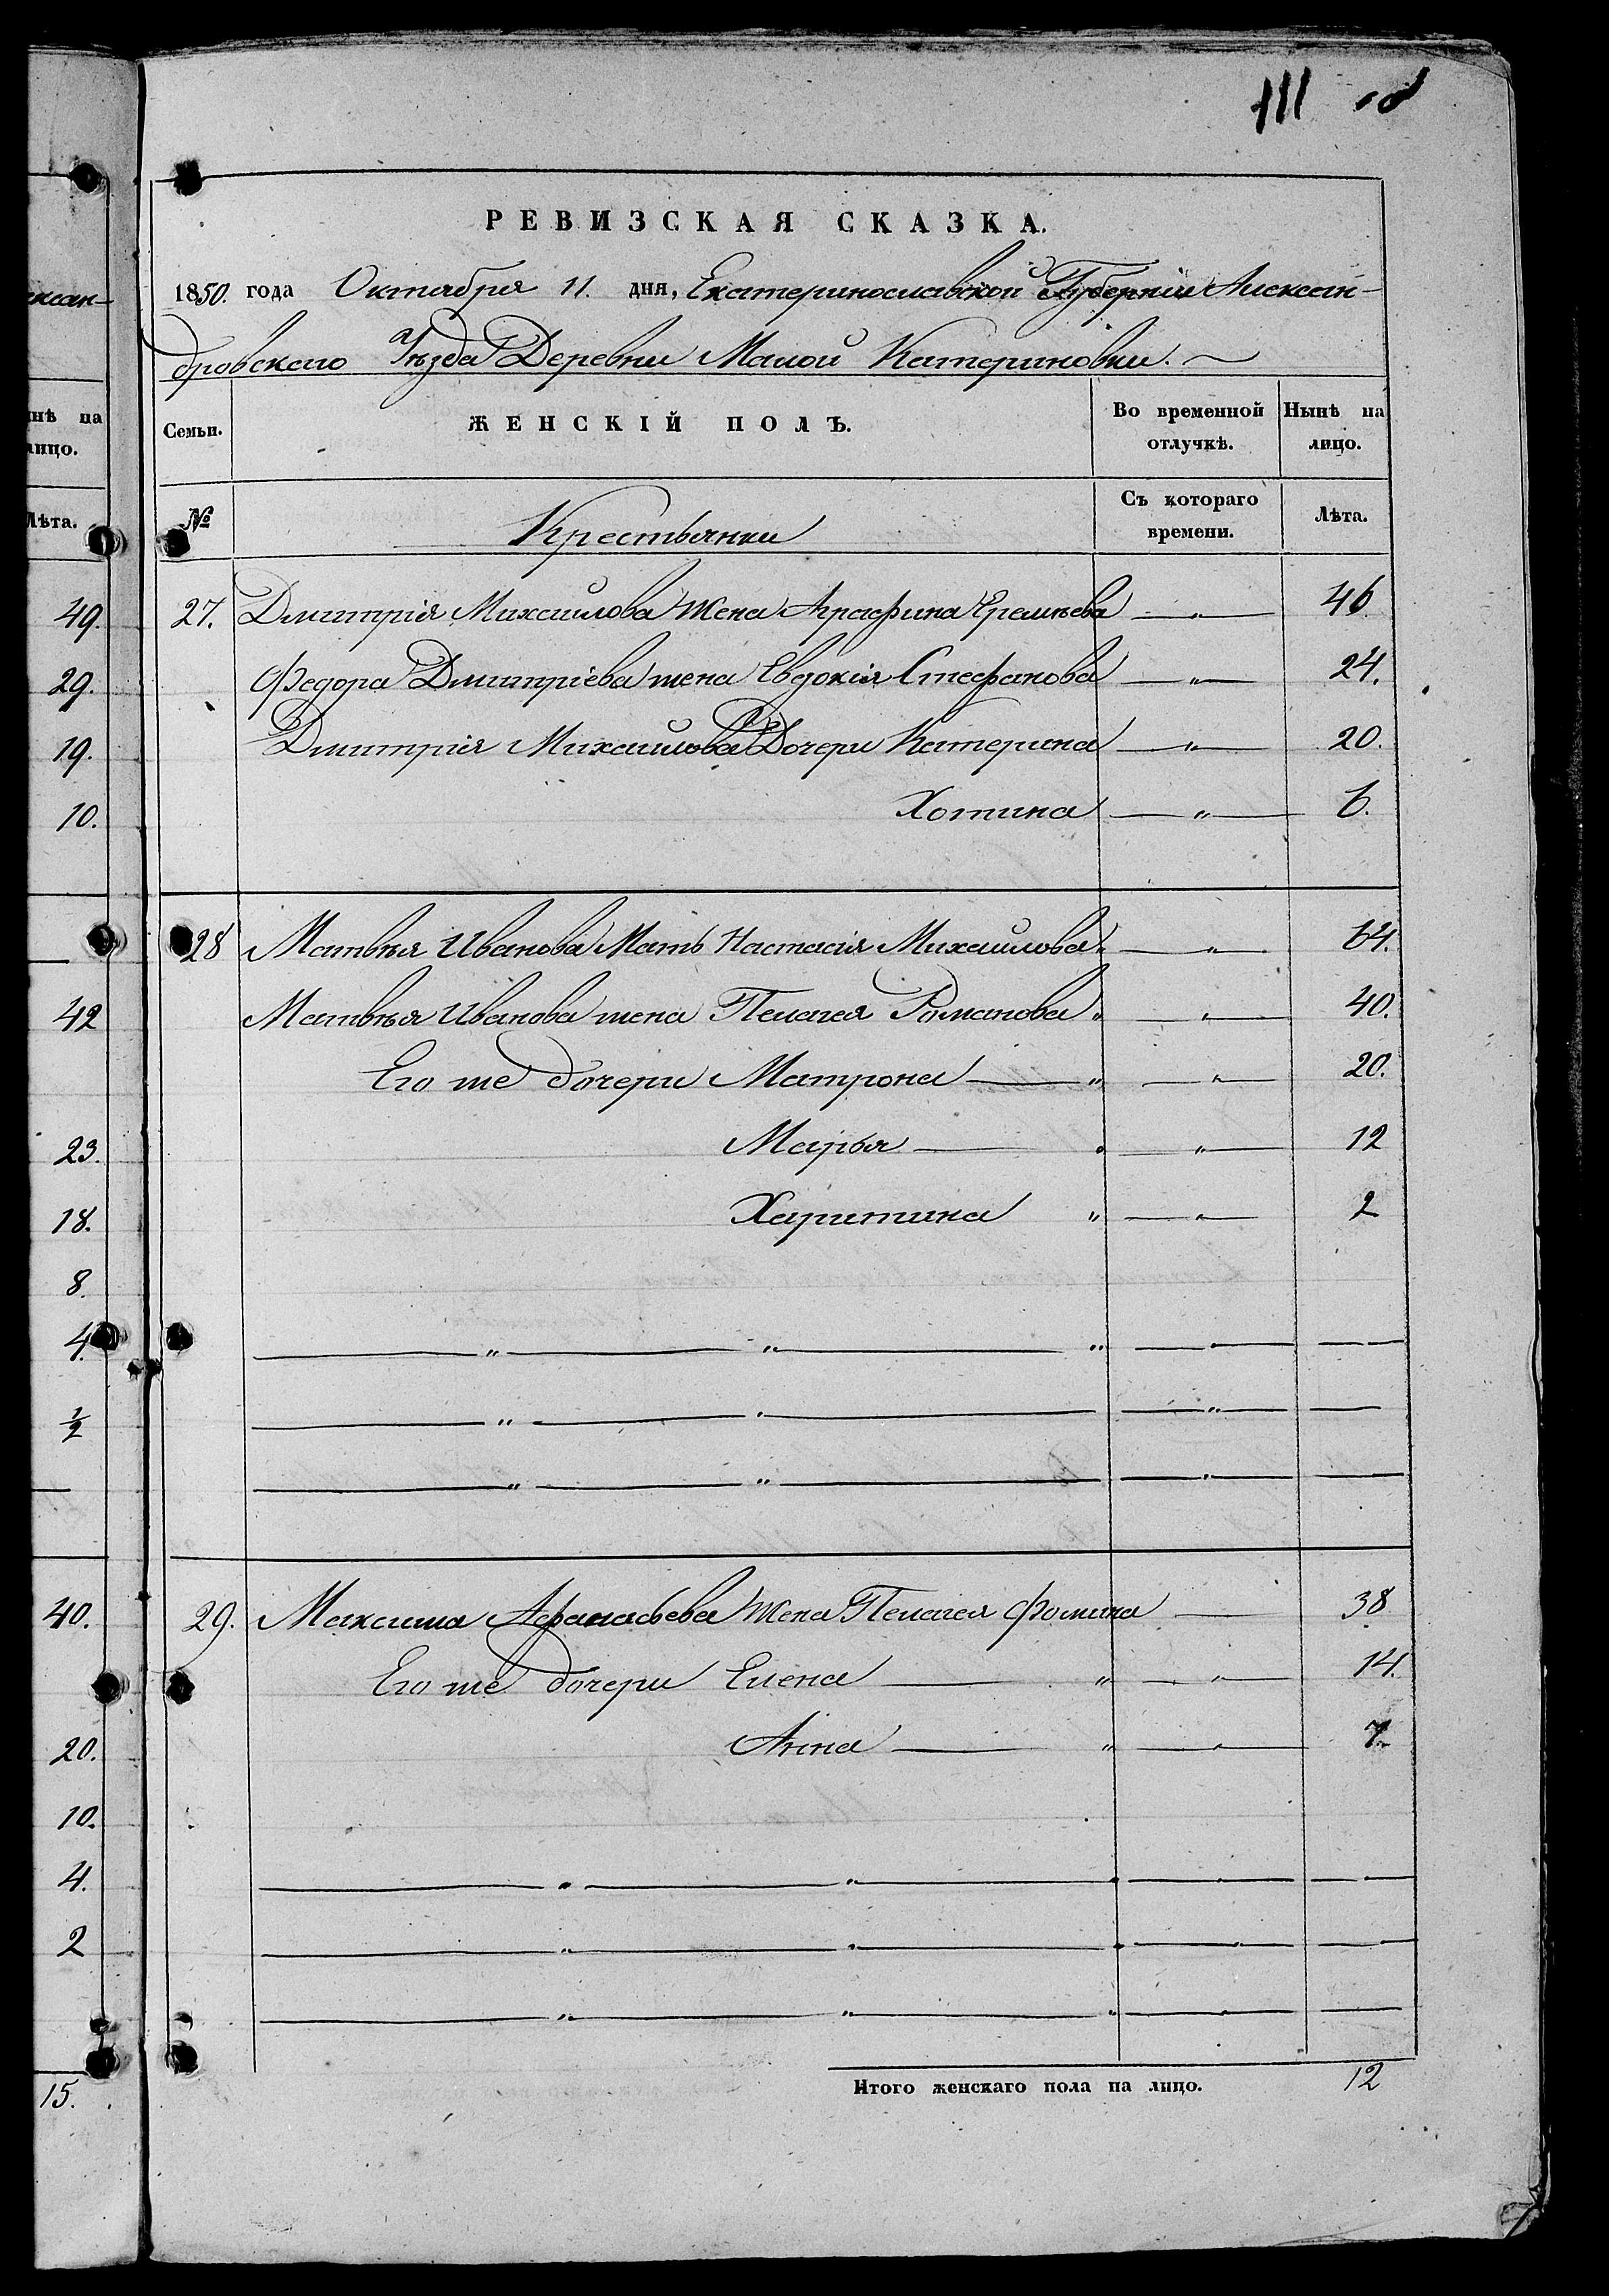 111
РЕВИЗСКАЯ СКАЗКА.
1850. года Октября 11. дня, Екатеринославской Губерніи Александ-
ровскаго Уѣзда Деревни Малой Катериновки.
Семьи.
ЖЕНСКІЙ ПОЛЪ.
Во временной отлучкѣ.
Нынѣ на лицо.
№
Крестьянки
Съ котораго времени.
Лѣта.
27. Дмитрія Михайлова Жена Аграфина Еремѣева — " — 46
Федора Дмитріева жена Евдокія Стефанова — " — 24.
Дмитрія Михайлова Дочери Катерина — " — 20.
Хотина — " — 6.
28 Матвѣя Иванова Мать Настасія Михайлова — " — 64.
Матвѣя Иванова жена Пелагея Романова — " — 40.
Его же дочери Матрона — " — " — 20.
Марья — " — " — 12
Харитина " — " — 2
29. Максима Афанасьева Жена Пелагея Фомина — 38
Его же дочери Елена — " — " — 14.
Анна — " — " — 7.
Итого женскаго пола на лицо. 12
ксан-
нѣ на
лицо.
Лѣта.
49.
29.
19.
10.
42
23.
18.
8.
4.
1/2
40.
20.
10.
4.
2
15.